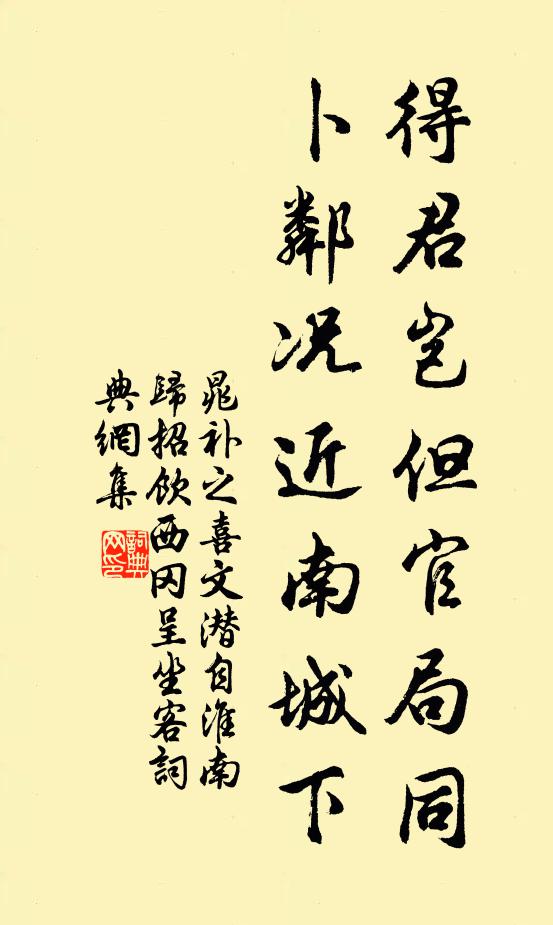 得君岂但官局同
卜鄰况近南城下
晁补之喜文潜自淮南
歸招飲西冈呈坐客詞
典網集
詞典网印